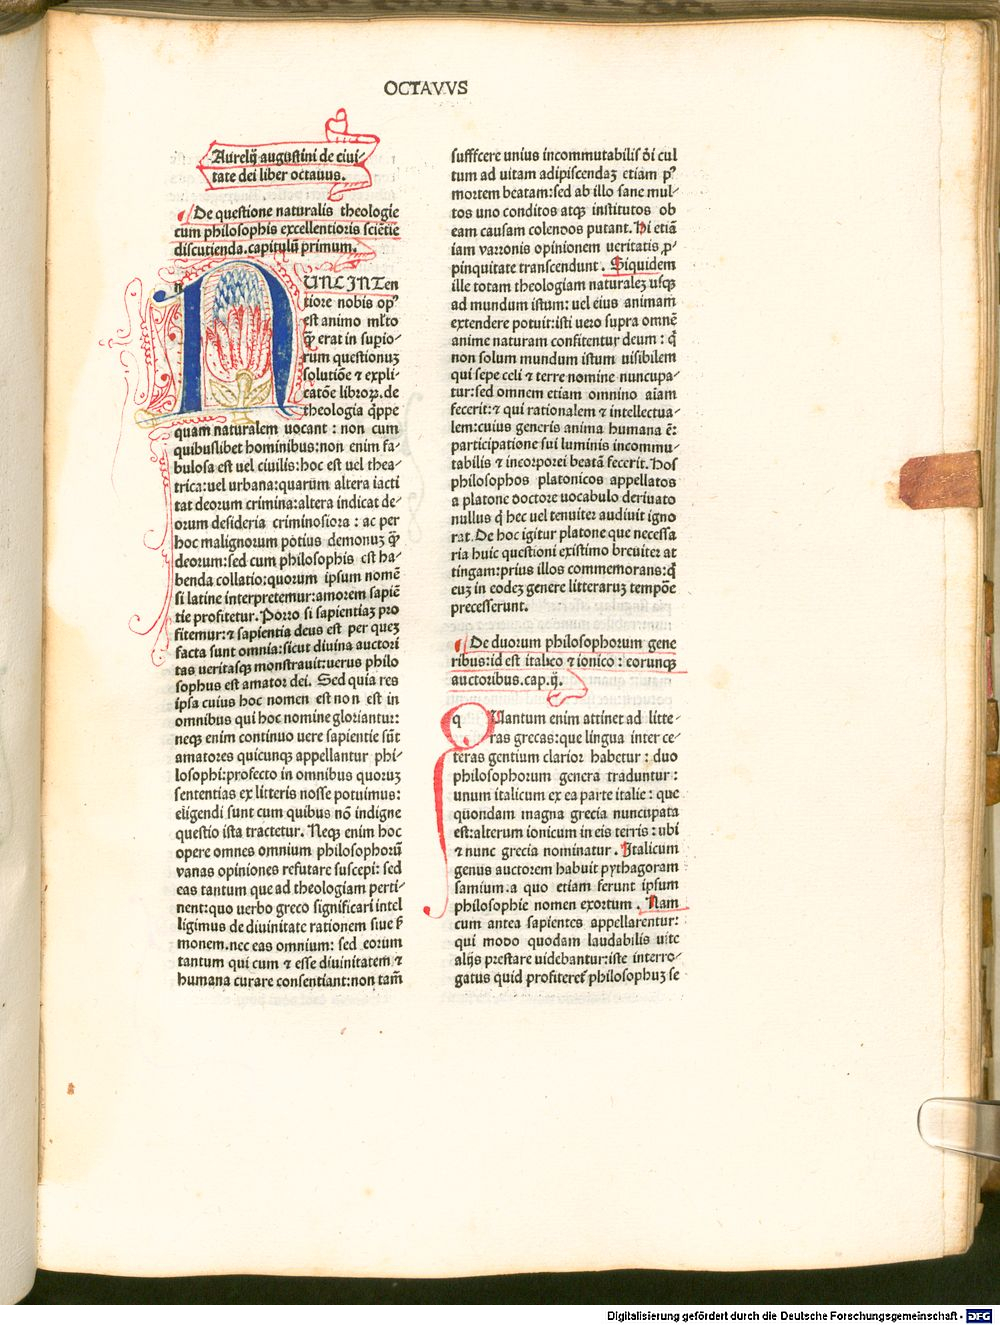 OCTAVVS
Aurelij augustini de ciui-
tate dei liber octauus.
De questione naturalis theologie
cum philosophis excellentioris sciẽtie
discutienda. capitulũ primum.
n UNC INTen
tiore nobis opꝰ
est animo ml̃to
ꝙ̃ erat in supio-
rum questionuꝫ
solutiõe ⁊ expli-
catõe libroꝝ. de
theologia q̃ppe
quam naturalem uocant : non cum
quibuslibet hominibus: non enim fa-
bulosa est uel ciuilis: hoc est uel thea-
trica: uel urbana: quarũm altera iacti
tat deorum crimina: altera indicat de-
orum desideria criminosiora : ac per
hoc malignorum potius demonuꝫ ꝙ̃
deorum: sed cum philosophis est ha-
benda collatio: quorum ipsum nomẽ
si latine interpretemur: amorem sapiẽ
tie profitetur. Porro si sapientiaꝫ pro
fitemur: ⁊ sapientia deus est per queꝫ
facta sunt omnia: sicut diuina auctori
tas ueritasqꝫ monstrauit: uerus philo
sophus est amator dei. Sed quia res
ipsa cuius hoc nomen est non est in
omnibus qui hoc nomine gloriantur:
neqꝫ enim continuo uere sapientie sũt
amatores quicunqꝫ appellantur phi-
losophi: profecto in omnibus quoruꝫ
sententias ex litteris nosse potuimus:
eligendi sunt cum quibus nõ indigne
questio ista tractetur. Neqꝫ enim hoc
opere omnes omnium philosophorũ
vanas opiniones refutare suscepi: sed
eas tantum que ad theologiam perti-
nent: quo uerbo greco significari intel
ligimus de diuinitate rationem siue ẜ
monem. nec eas omnium: sed eorum
tantum qui cum ⁊ esse diuinitatem ⁊
humana curare consentiant: non tam̃
suffcere unius incommutabilis d̃i cul
tum ad uitam adipiscendaꝫ etiam pꝰ
mortem beatam: sed ab illo sane mul-
tos uno conditos atqꝫ institutos ob
eam causam colendos putant. Hi etiã
iam varronis opinionem ueritatis ꝓ-
pinquitate transcendunt. Siquidem
ille totam theologiam naturaleꝫ usqꝫ
ad mundum istum: uel eius animam
extendere potuit: isti uero supra omnẽ
anime naturam confitentur deum : q̃
non solum mundum istum uisibilem
qui sepe celi ⁊ terre nomine nuncupa-
tur: sed omnem etiam omnino aiam
fecerit: ⁊ qui rationalem ⁊ intellectua-
lem: cuius generis anima humana ẽ:
participatione sui luminis incommu-
tabilis ⁊ incorporei beatã fecerit. Hos
philosophos platonicos appellatos
a platone doctore uocabulo deriuato
nullus q̃ hec uel tenuiter audiuit igno
rat. De hoc igitur platone que necessa
ria huic questioni existimo breuiter at
tingam: prius illos commemorans: q̃
euꝫ in eodeꝫ genere litteraruꝫ tempõe
precesserunt.
De duorum philosophorum gene
ribus: id est italico ⁊ ionico : eorunqꝫ
auctoribus. cap. ij.
q Uantum enim attinet ad litte-
ras grecas: que lingua inter ce-
teras gentium clarior habetur : duo
philosophorum genera traduntur :
unum italicum ex ea parte italie : que
quondam magna grecia nuncupata
est: alterum ionicum in eis terris : ubi
⁊ nunc grecia nominatur. Italicum
genus auctorem habuit pythagoram
samium. a quo etiam ferunt ipsum
philosophie nomen exortum . Nam
cum antea sapientes appellarentur:
qui modo quodam laudabilis uite
alijs prestare uidebantur: iste interro-
gatus quid profiteret̃ philosophuꝫ se
Digitalisierung gefördert durch die Deutsche Forschungsgemeinschaft - DFG